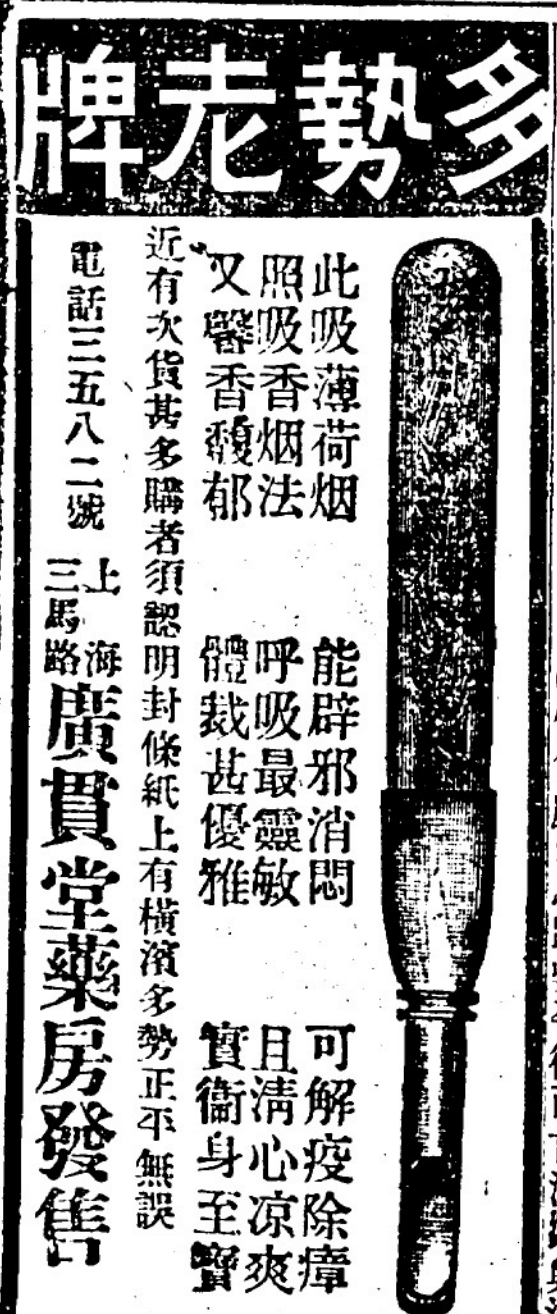 多勢老牌
此吸薄荷烟 能辟邪消悶 可解疫除瘴
照吸香烟法 呼吸最靈敏 且淸心凉爽
又馨香馥郁 體裁甚優雅 實衞身至寶
近有次貨甚多購者須認明封條紙上有橫濱多勢正平無誤
電話三五八二號
上海三馬路廣貫堂藥房發售